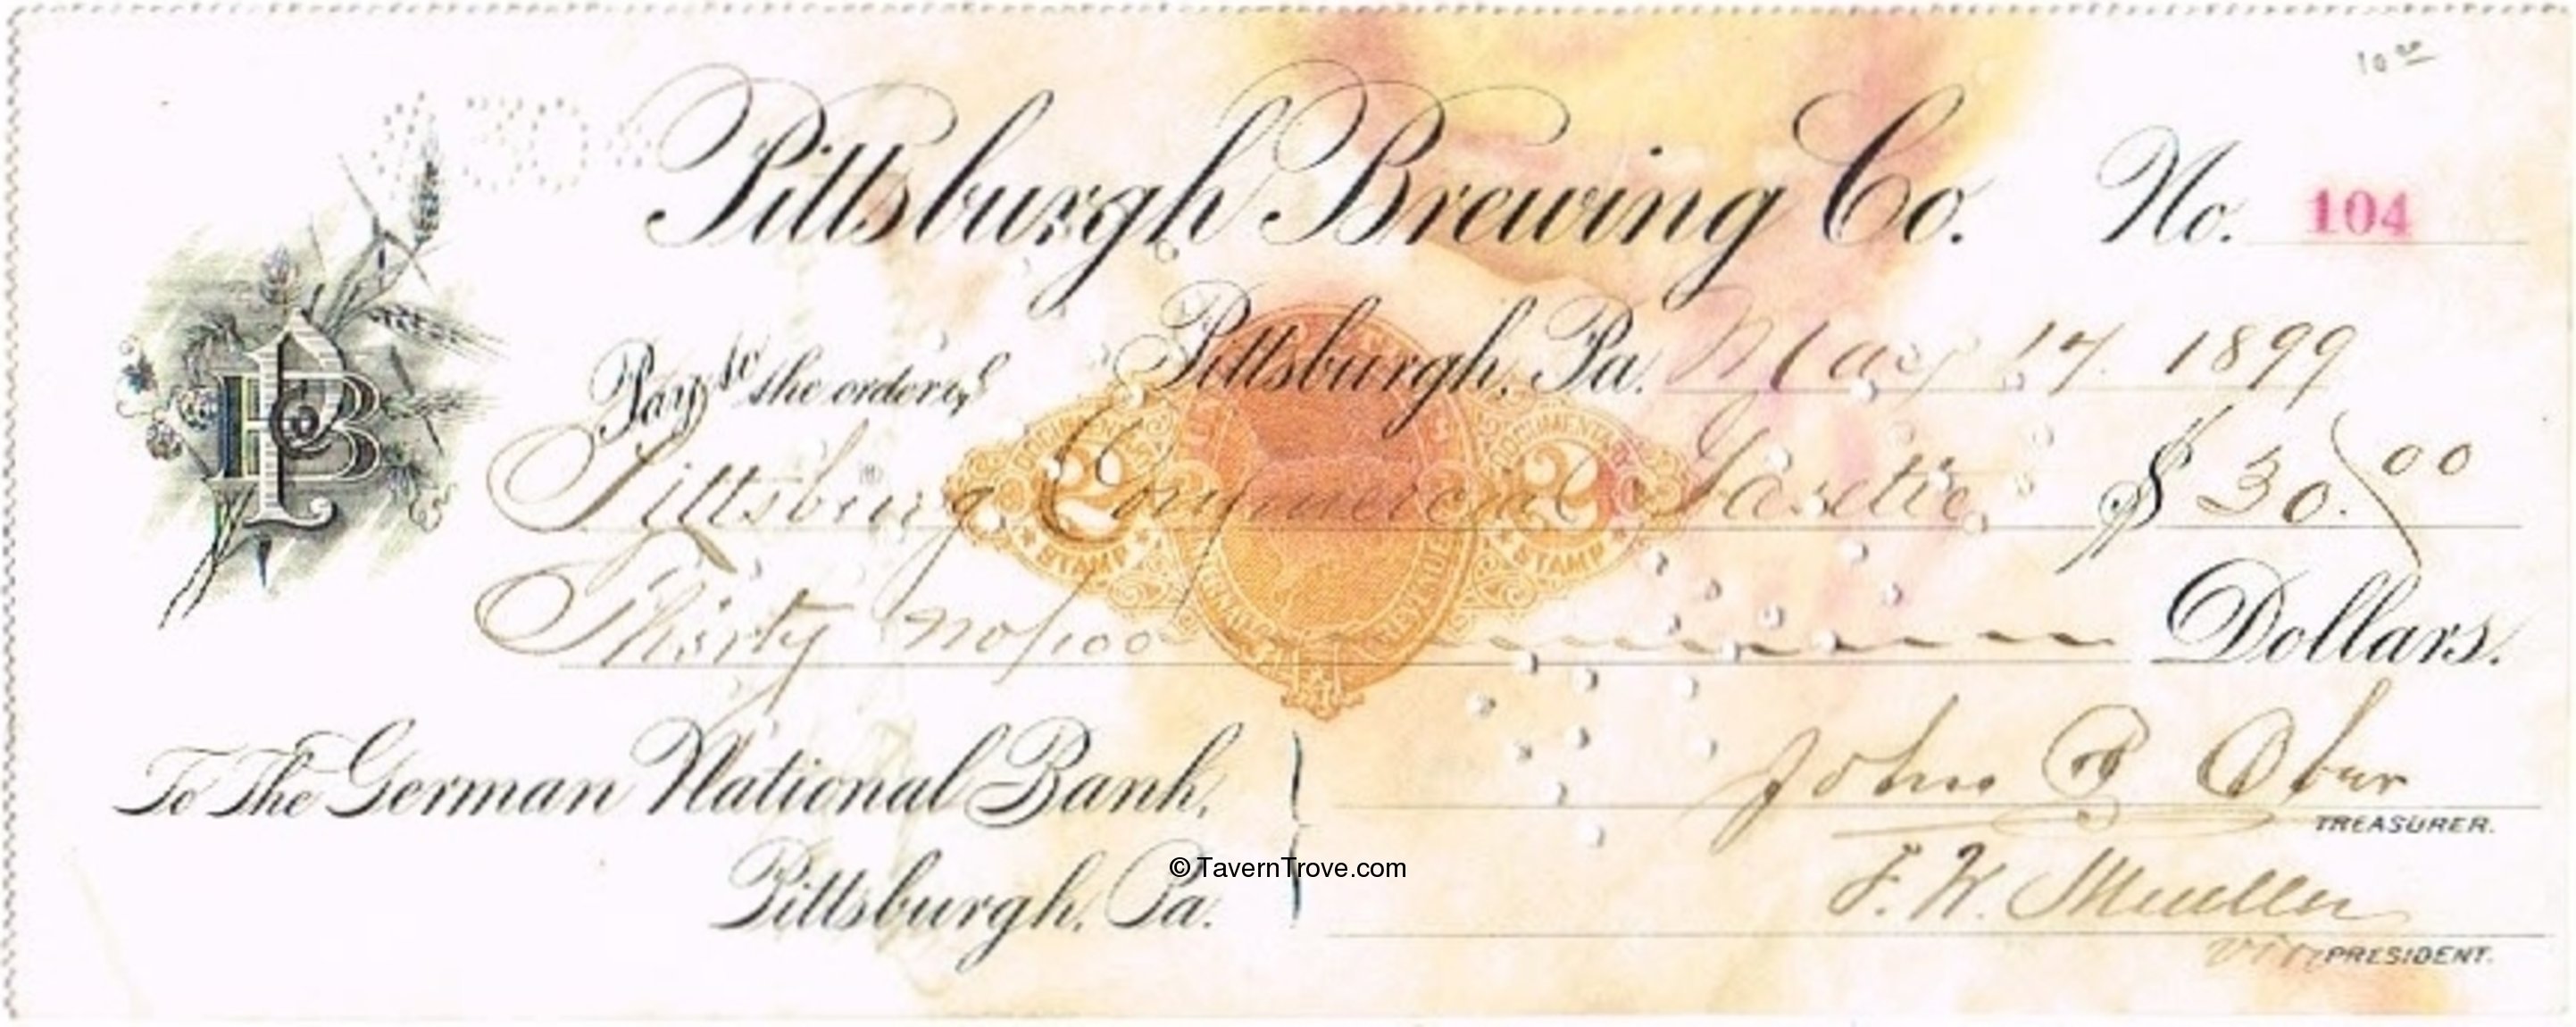 10 00
$30$
Pittsburgh Brewing Co. No. 104
Pittsburgh, Pa. May 17. 1899
Pay to the order of
Pittsburg Commercial Gazette $ 30.00
Thirty no/100 Dollars.
DOCUMENTARY 2 STAMP DOCUMENTARY 2 STAMP
INTERNAL REVENUE
PB Co
To The German National Bank,
Pittsburgh, Pa.
John P Ober
TREASURER.
F. W. Mueller
Vice PRESIDENT.
© TavernTrove.com